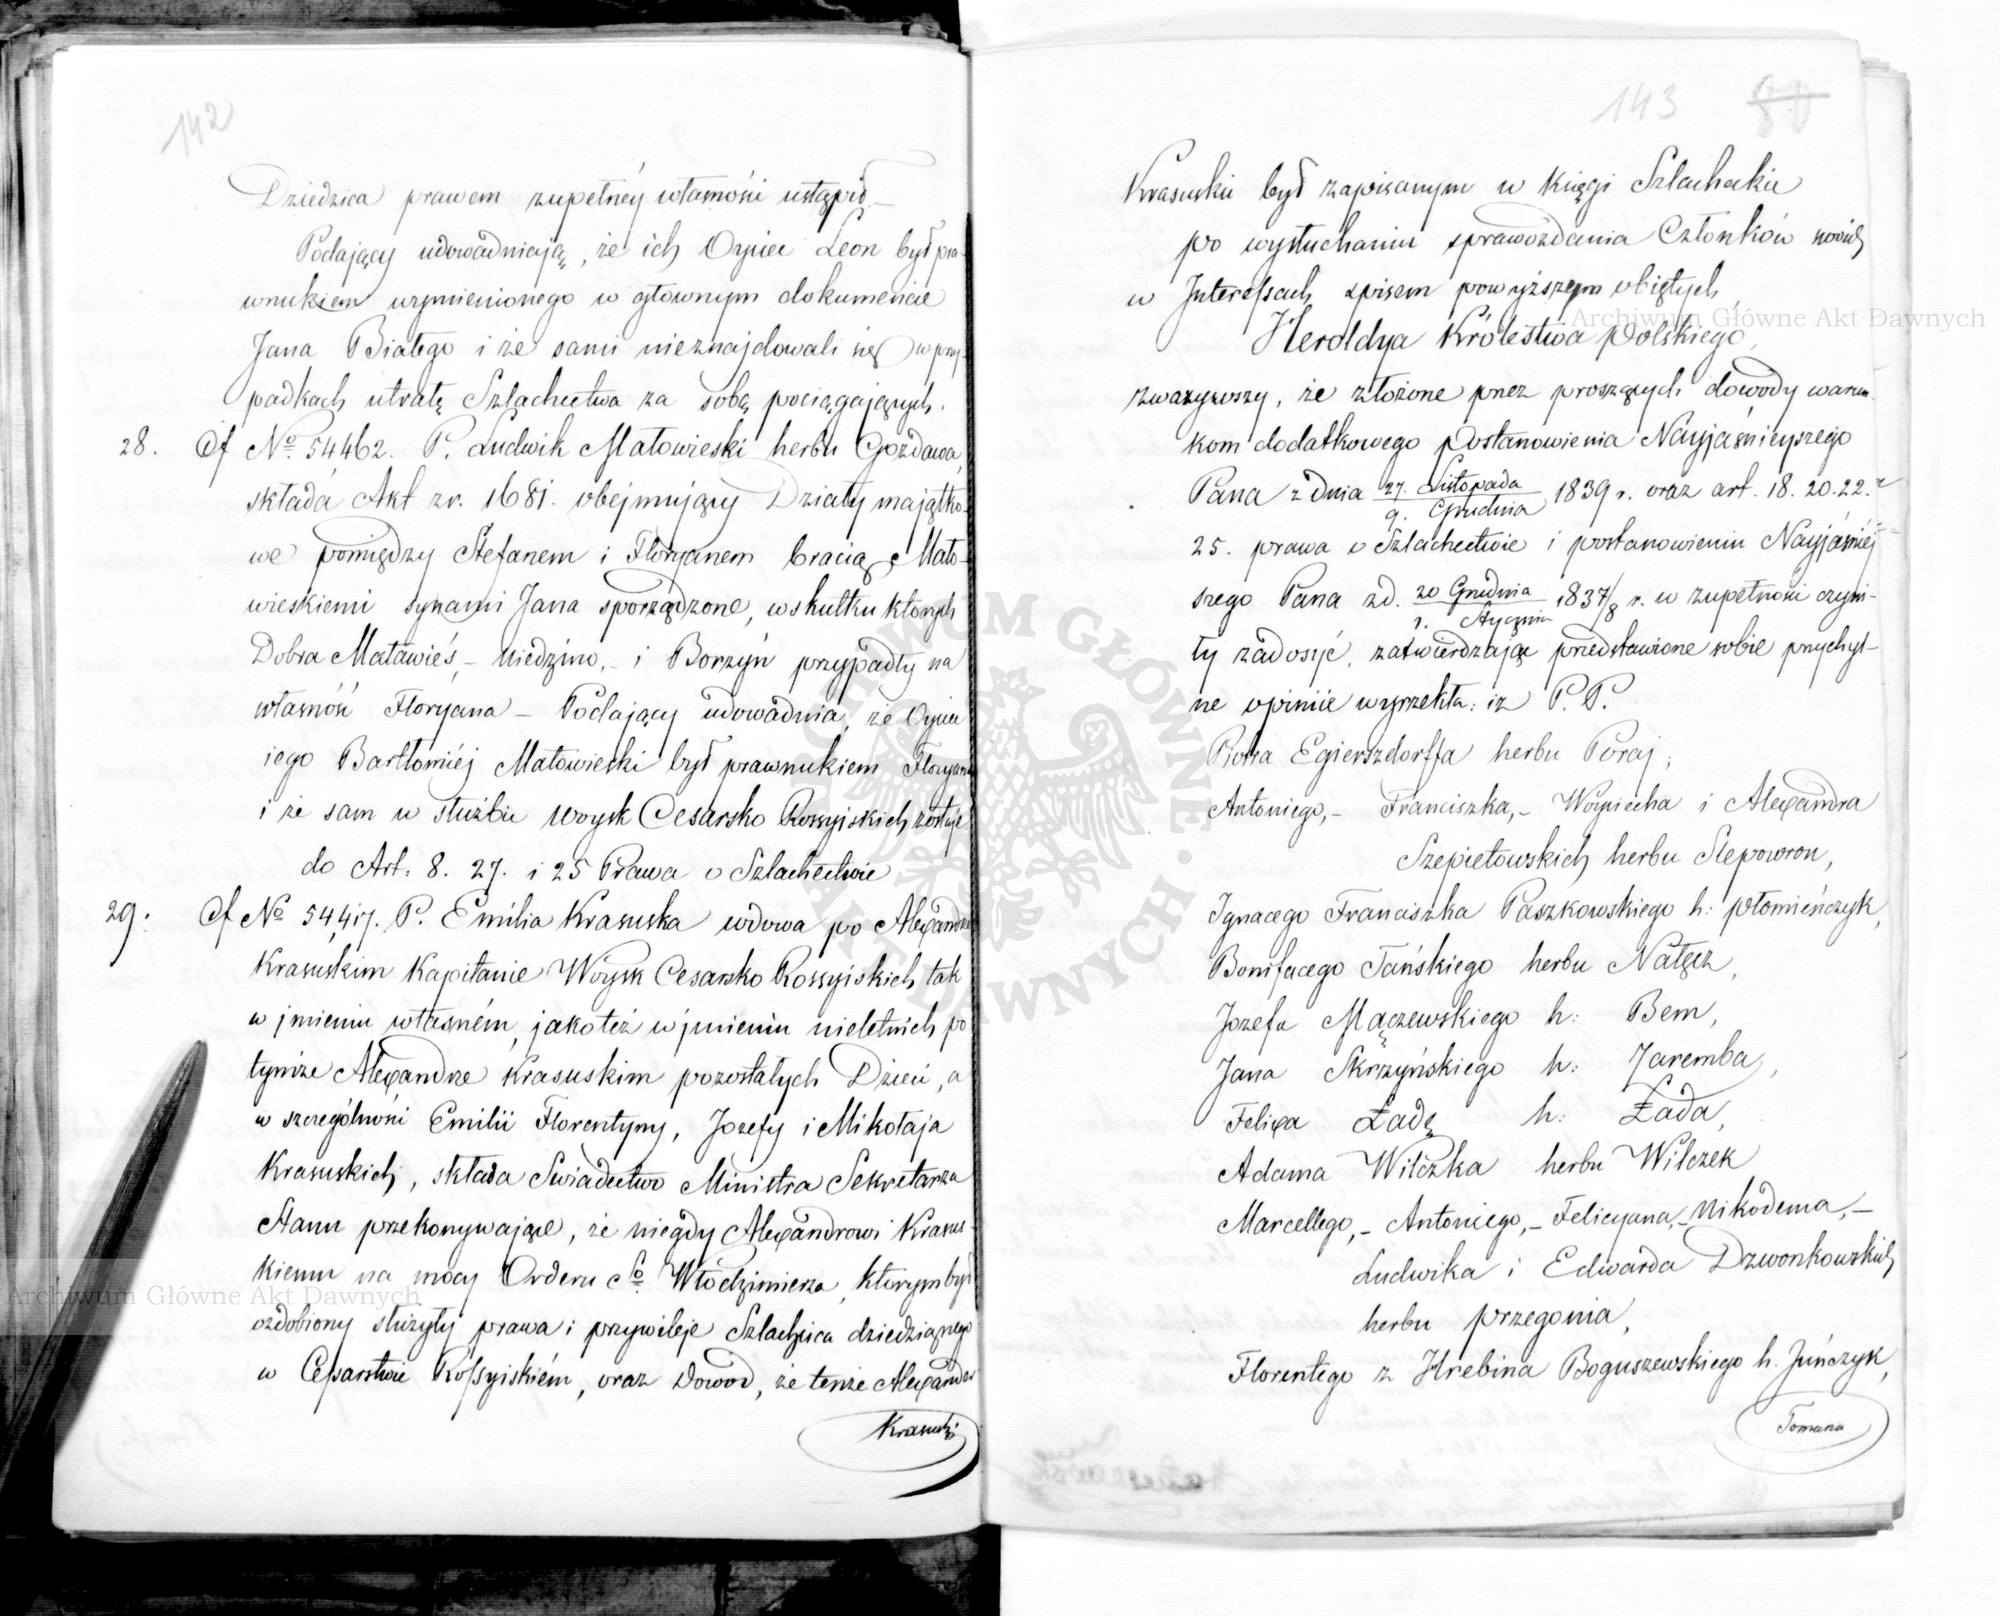 142
Dziedzica prawem zupełnéy własności ustąpił.—
Podający udowadniają, że ich Oyciec Leon był pra-
wnukiem wymienionego w głownym dokumencie
Jana Białego i że sami nieznajdowali się w przy-
padkach utratę Szlachectwa za sobą pociągających.
28. Of No 54462. P. Ludwik Małowieski herbu Gozdawa,
składa Akt z r. 1681. obejmujący Działy majątko-
we pomiędzy Stefanem i Floryanem bracią Mało-
wieskiemi synami Jana sporządzone, w skutku których
Dobra Maławieś, – Niedzino, – i Borzyń przypadły na
własność Floryana – Podający udowadnia, że Oyciec
iego Bartłomiéj Małowieski był prawnukiem Floryana
i że sam w służbie woysk Cesarsko Rossyiskich zostaje
do Art: 8. 27. i 25 Prawa o Szlachectwie
29. Of No 54,417. P. Emilia Krasuska wdowa po Alexandrze
Krasuskim Kapitanie Woysk Cesarsko Rossyiskich tak
w jmieniu własném, jakoteż w jmieniu nieletnich po
tymże Alexandrze Krasuskim pozostałych Dzieci, a
w szczególności Emilii Florentyny, Jozefy i Mikołaja
Krasuskich, składa Swiadectwo Ministra Sekretarza
Stanu przekonywające, że niegdy Alexandrowi Krasus-
kiemu na mocy Orderu So Włodzimierza, którym był
ozdobiony służyły prawa i przywileje Szlachcica dziedzicznego
w Cesarstwie Rossyiskiém, oraz Dowod, że tenże Alexander
Krasuski
143
Krasuski był zapisanym w księgi Szlacheckie
po wysłuchaniu sprawozdania Członków
w Interessach spisem powyższym obiętych
Heroldya Królestwa Polskiego,
zważywszy, że złożone przez proszących dowody warun-
kom dodatkowego postanowienia Nayjaśnieyszego
Pana z dnia 27. Listopada / 9. Grudnia 1839 r. oraz art. 18. 20. 22. i
25. prawa o Szlachectwie i postanowieniu Nayjaśniéj-
szego Pana z d. 20 Grudnia / 1. Stycznia 1837/8 r. w zupełności czyni-
ły zadosyć, zatwierdzając przedstawione sobie przychyl-
ne opinie wyrzekła: iż P. P.
Piotra Egierszdorffa herbu Poraj;
Antoniego, – Franciszka, – Woyciecha i Alexandra
Szepietowskich herbu Slepowron,
Ignacego Franciszka Paszkowskiego h: Płomieńczyk,
Bonifacego Tańskiego herbu Nałęcz,
Jozefa Mączewskiego h: Bem,
Jana Skrzyńskiego h: Zaremba,
Felixa Ładę h: Łada,
Adama Wilczka herbu Wilczek
Marcellego, – Antoniego, – Felicyana, – Nikodema, –
Ludwika i Edwarda Dzwonkowskich
herbu Przegonia,
Florentego z Hrebina Boguszewskiego h. Juńczyk,
Tomana
Archiwum Główne Akt Dawnych
Archiwum Główne Akt Dawnych
ARCHIWUM GŁÓWNE AKT DAWNYCH